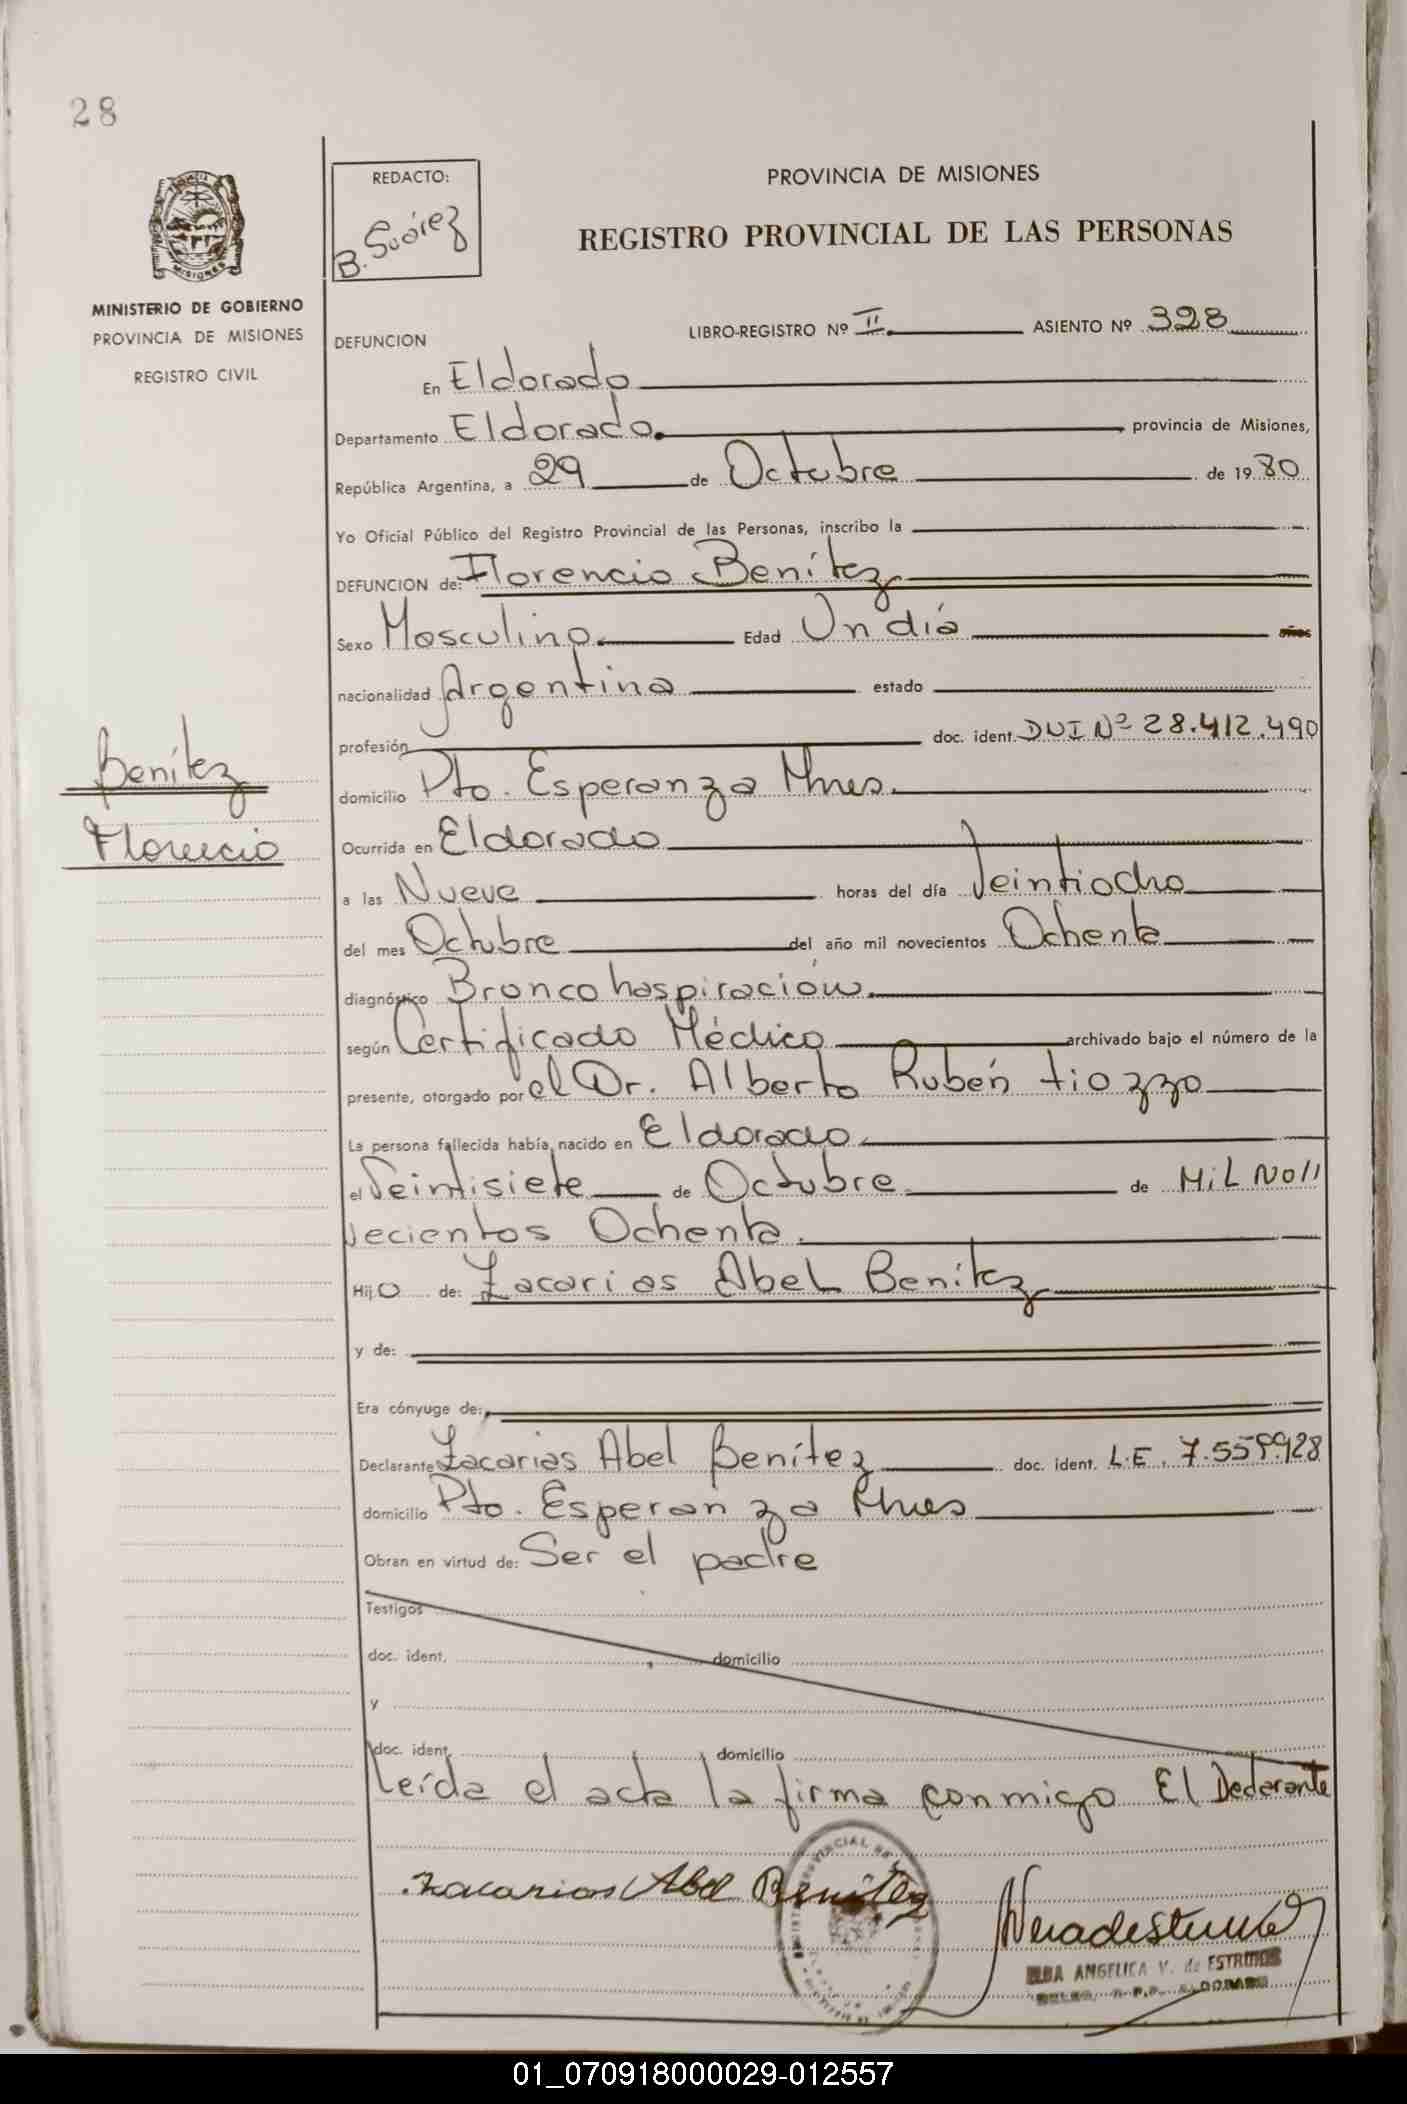 28
REDACTO:
B. Suárez
PROVINCIA DE MISIONES
REGISTRO PROVINCIAL DE LAS PERSONAS
MISIONES
MINISTERIO DE GOBIERNO
PROVINCIA DE MISIONES
REGISTRO CIVIL
DEFUNCION
LIBRO-REGISTRO Nº II ASIENTO Nº 328
En Eldorado
Departamento Eldorado. provincia de Misiones,
República Argentina, a 29 de Octubre de 1980
Yo Oficial Público del Registro Provincial de las Personas, inscribo la
DEFUNCION de: Florencio Benítez
Sexo Masculino. Edad Un día años
nacionalidad Argentina estado
profesión doc. ident. DUI Nº 28.412.490
Benítez
Florencio
domicilio Pto. Esperanza Mnes.
Ocurrida en Eldorado
a las Nueve horas del día Veintiocho
del mes Octubre del año mil novecientos Ochenta
diagnóstico Broncohaspiración.
según Certificado Médico archivado bajo el número de la
presente, otorgado por el Dr. Alberto Rubén Tiozzo
La persona fallecida había nacido en Eldorado.
el Veintisiete de Octubre de Mil No//
vecientos Ochenta.
Hijo de: Zacarias Abel Benítez
y de:
Era cónyuge de:
Declarante Zacarias Abel Benítez doc. ident. L.E. 7.559.928
domicilio Pto. Esperanza Mnes
Obran en virtud de: Ser el padre
Testigos
doc. ident. domicilio
y
doc. ident. domicilio
Leída el acta la firma conmigo El Declarante
Zacarias Abel Benítez
ANGELICA V. de
01_070918000029-012557